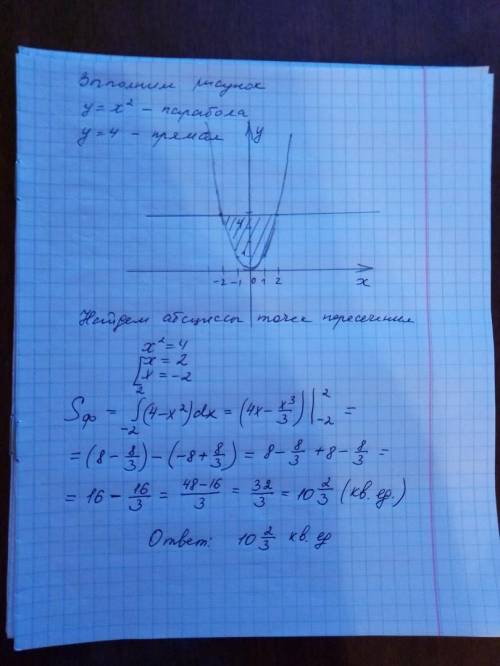 Выполним рисунок
y = x² – парабола
y = 4 – прямая
y
4
1
-2 -1 0 1 2
x
Найдем абсциссы точек пересечения
x² = 4
[x = 2
[x = -2
Sф = ∫₋₂² (4-x²)dx = (4x - x³/3) |₋₂² =
= (8 - 8/3) - (-8 + 8/3) = 8 - 8/3 + 8 - 8/3 =
= 16 - 16/3 = 48-16/3 = 32/3 = 10 2/3 (кв. ед.)
Ответ: 10 2/3 кв. ед